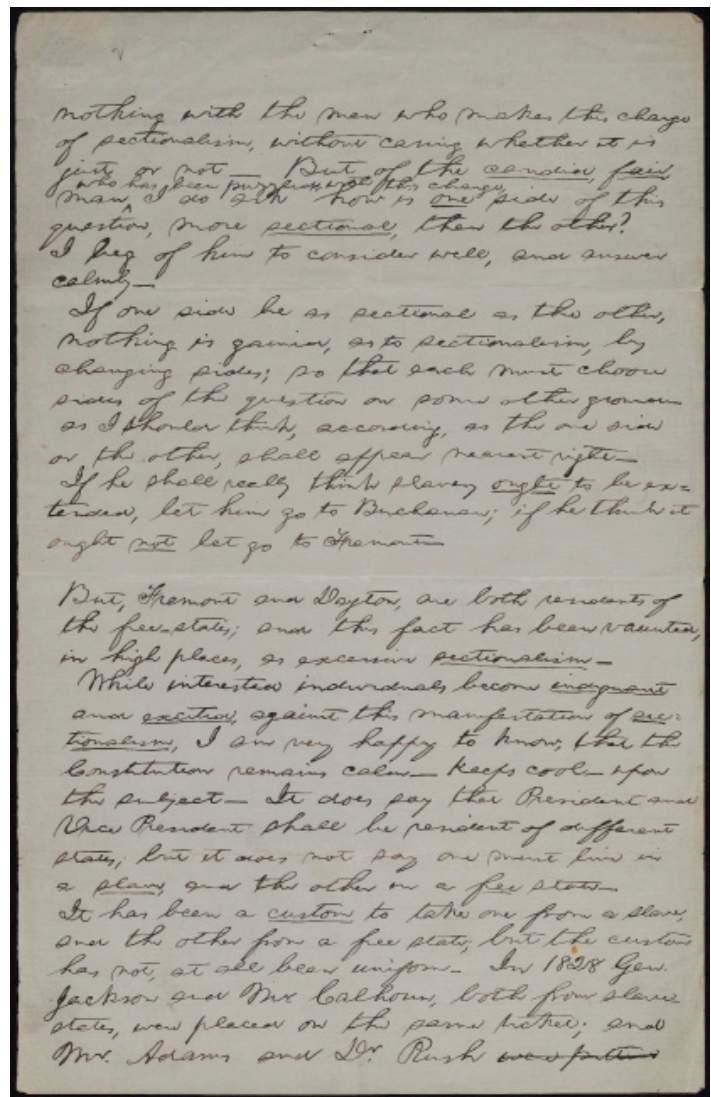 nothing with the man who makes this charge
of sectionalism, without caring whether it is
just or not — But of the candid, fair
who has been puzzled with this charge,
man, I do ask how is one side of this
question, more sectional, than the other?
I beg of him to consider well, and answer
calmly —
If one side be as sectional as the other,
nothing is gained, as to sectionalism, by
changing sides; so that each must choose
sides of the question on some other ground
as I should think, according, as the one side
or the other, shall appear nearest right —
If he shall really think slavery ought to be ex=
tended, let him go to Buchanan; if he think it
ought not let go to Fremont —
But, Fremont and Dayton, are both residents of
the free-states; and this fact has been vaunted,
in high places, as excessive sectionalism —
While interested individuals become indignant
and excited, against this manifestation of sec=
tionalism, I am very happy to know, that the
Constitution remains calm — keeps cool — upon
the subject — It does say that President and
Vice President shall be resident of different
states; but it does not say one must live in
a slave, and the other in a free state —
It has been a custom to take one from a slave,
and the other from a free state; but the custom
has not, at all been uniform — In 1828 Gen.
Jackson and Mr. Calhoun, both from slave-
states, were placed on the same ticket; and
Mr. Adams and Dr. Rush